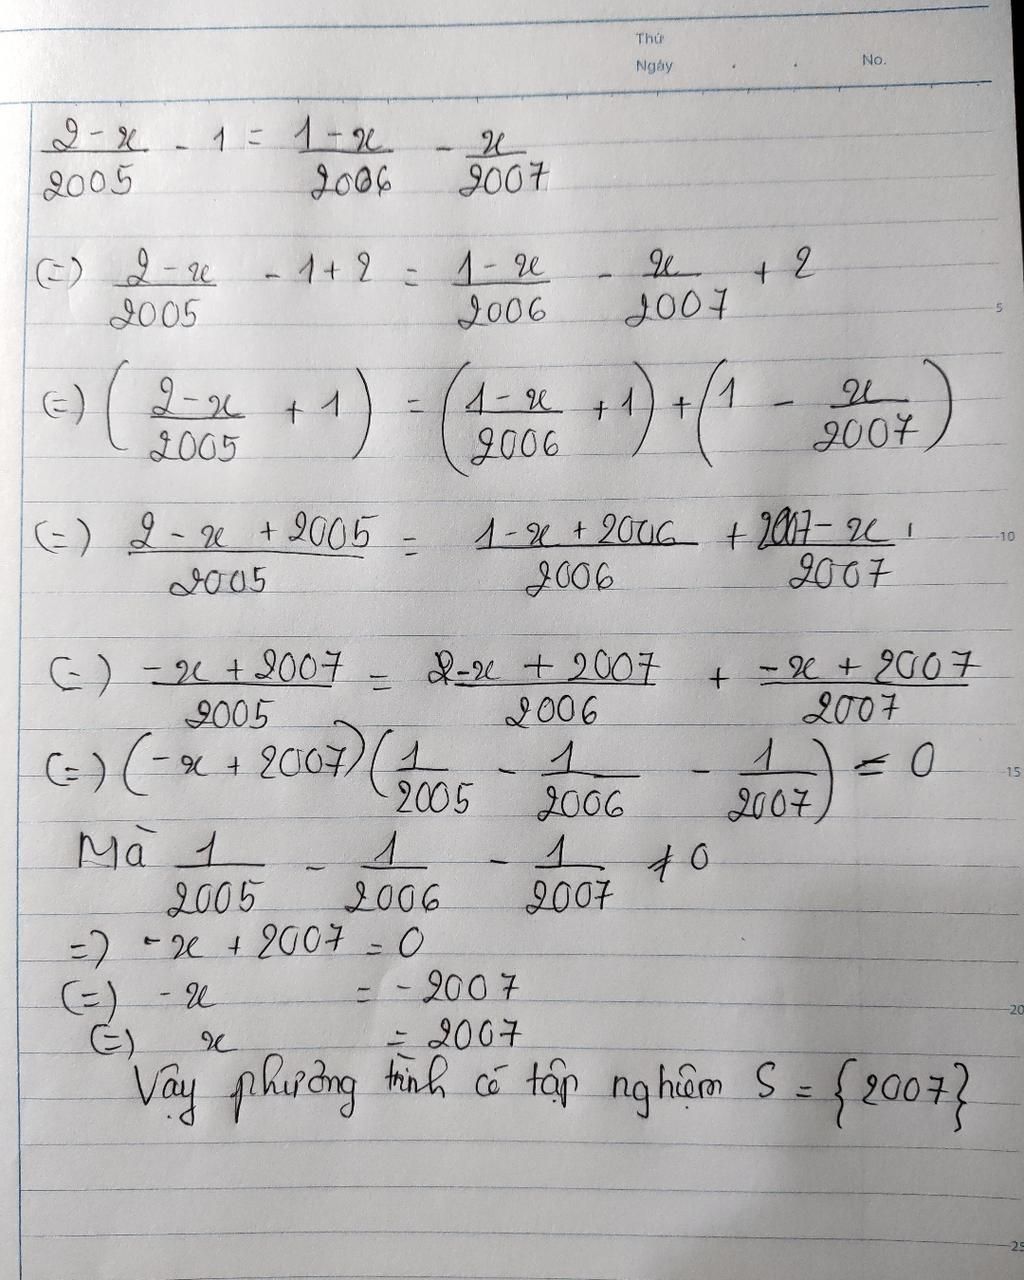 Thứ
Ngày . . No.
2-x/2005 - 1 = 1-x/2006 - x/2007
(=) 2-x/2005 - 1+2 = 1-x/2006 - x/2007 + 2
5
(=) (2-x/2005 + 1) = (1-x/2006 + 1) + (1 - x/2007)
(=) 2-x+2005/2005 = 1-x+2006/2006 + 2007-x/2007
10
(=) -x+2007/2005 = -x+2007/2006 + -x+2007/2007
(=) (-x+2007)(1/2005 - 1/2006 - 1/2007) = 0
15
Mà 1/2005 - 1/2006 - 1/2007 ≠ 0
=) -x+2007 = 0
(=) -x = -2007
20
(=) x = 2007
Vậy phương trình có tập nghiệm S = {2007}
25